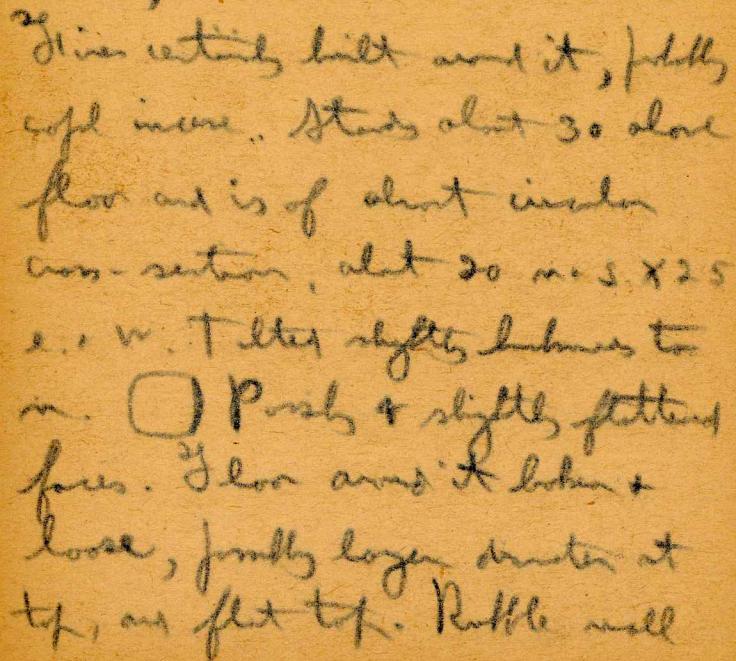 Floor certainly built around it, probably
copal incense. Stands about 30 above
floor and is of almost circular
cross-section, about 20 n-s x 25
e-w. Tilted slightly backwards to
n. Possibly 4 slightly flattened
faces. Floor around it broken &
loose, possibly larger diameter at
top, and flat top. Rubble wall